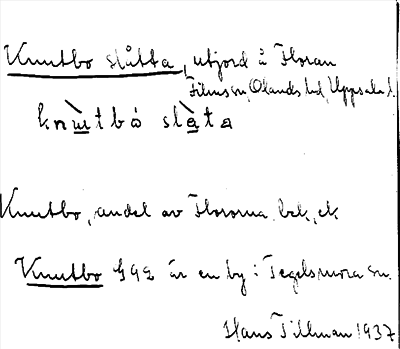 Knutbo slåtta, utjord å Floran
Films sn, Olands hd, Uppsala l.
knùtbo slàta
Knutbo, andel av Florarna, bek, ek
Knutbo G92 är en by i Tegelsmora sn.
Hans Tillman 1937